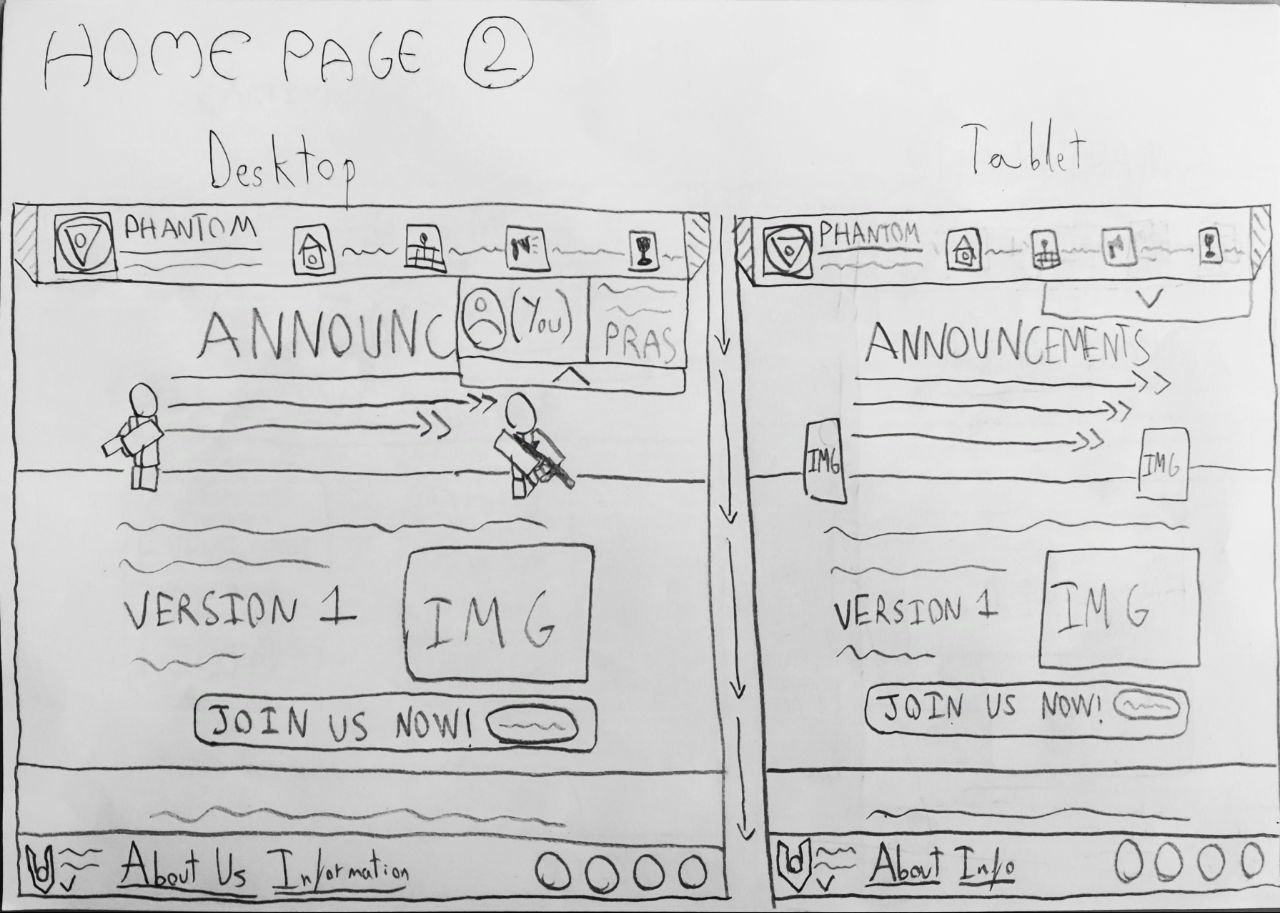 HOME PAGE 2
Desktop
PHANTOM
ANNOUNC
(You)
PRAS
VERSION 1
IMG
JOIN US NOW!
About Us Information
Tablet
PHANTOM
ANNOUNCEMENTS
IMG
IMG
VERSION 1
IMG
JOIN US NOW!
About Info